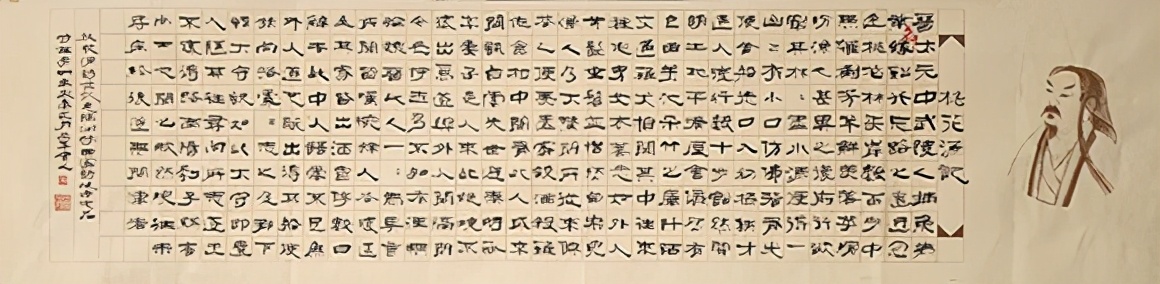 桃花源記
晉太元中武陵人捕魚為
業緣溪行忘路之遠近忽
逢桃花林夾岸數百步中
無雜樹芳草鮮美落英繽
紛漁人甚異之復前行欲
窮其林林盡水源便得一
山山有小口仿佛若有光
便舍船從口入初極狹才
通人復行數十步豁然開
朗土地平曠屋舍儼然有
良田美池桑竹之屬阡陌
交通雞犬相聞其中往來
種作男女衣著悉如外人
黃髮垂髫並怡然自樂見
漁人乃大驚問所從來具
答之便要還家設酒殺雞
作食村中聞有此人咸來
問訊自云先世避秦時亂
率妻子邑人來此絕境不
復出焉遂與外人間隔問
今是何世乃不知有漢無
論魏晉此人一一為具言
所聞皆歎惋餘人各復延
至其家皆出酒食停數日
辭去此中人語云不足為
外人道也既出得其船便
扶向路處處誌之及郡下
詣太守說如此太守即遣
人隨其往尋向所誌遂迷
不復得路南陽劉子驥高
士也聞之欣然規往未果
尋病終後遂無問津者